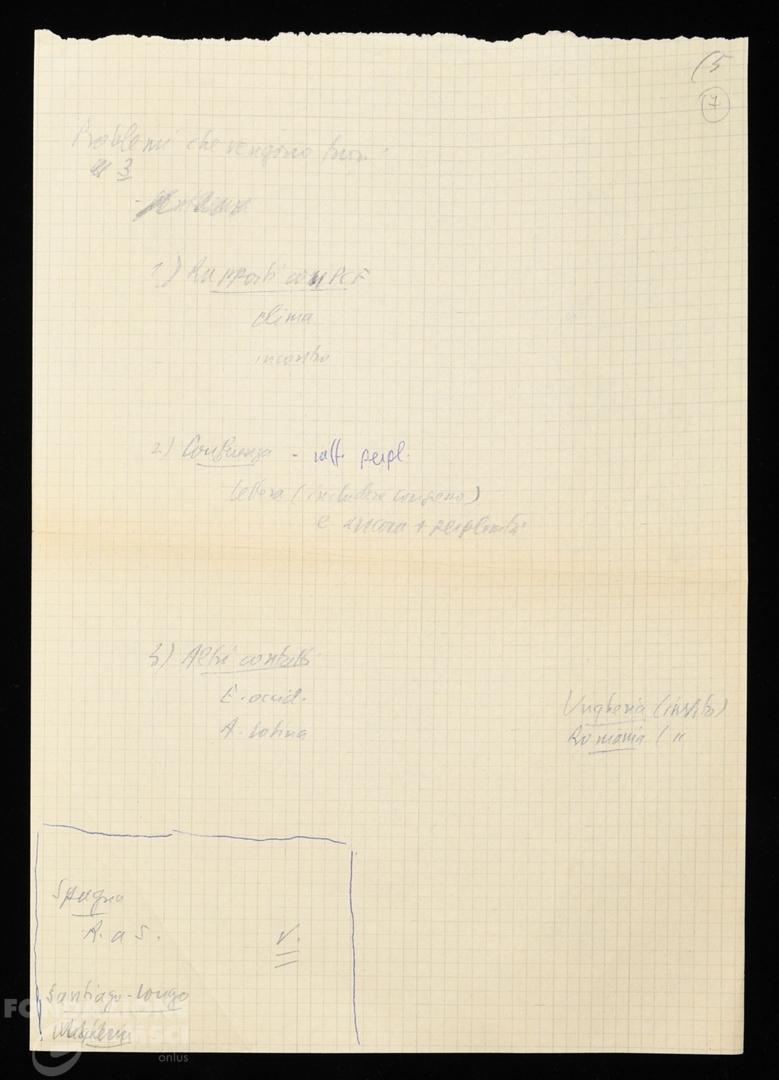 (5
7
Problemi che vengono fuori:
3
1) Rapporti con PCF
clima
incontro
2) Conferenza - raff. perpl.
lettera (includere congeno)
e ancora + perplessità
3) Altri contatti
E. occid.
A. latina
Ungheria (invito)
Romania ( "
Spagna
R. a S.
V.
Santiago-Longo
FONDAZIONE
GRAMSCI
onlus